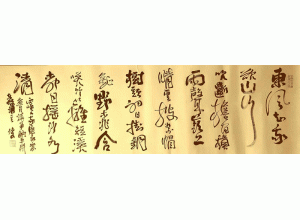 東風知我
欲山行
吹斷檐間積
雨聲嶺上
晴雲披絮帽
樹頭初日掛銅
鉦野桃含
笑竹籬短溪
柳自搖沙水
清